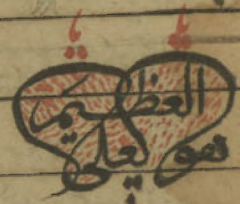 يا يا
العظيم
وهو العلى